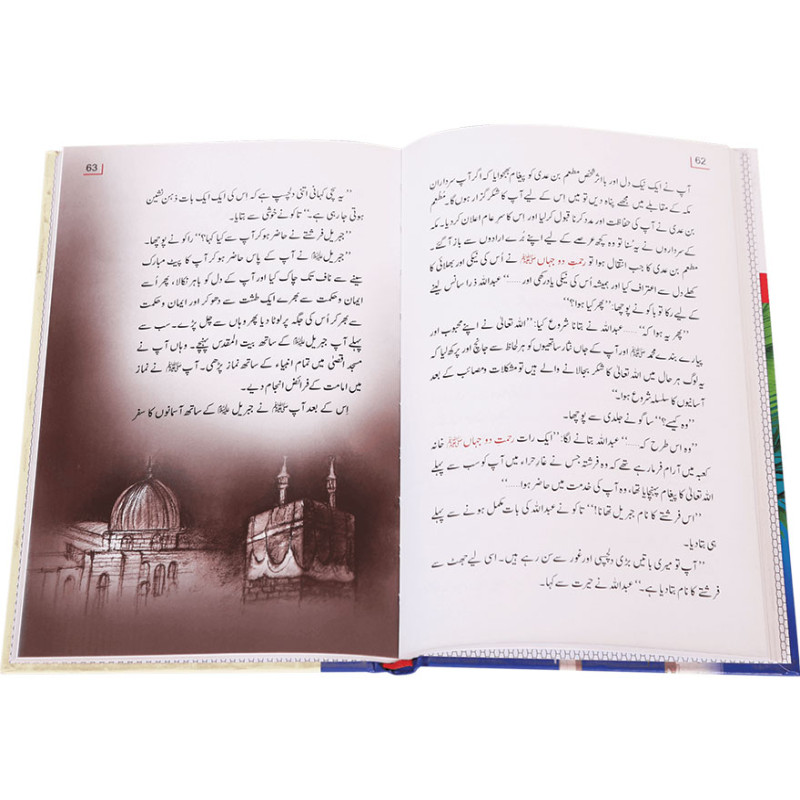 62
آپ نے ایک نیک دل اور بااثر شخص مطعم بن عدی کو پیغام بھجوایا کہ اگر آپ سردارانِ
مکہ کے مقابلے میں مجھے پناہ دیں تو میں اس کے لیے آپ کا شکر گزار ہوں گا۔ مطعم
بن عدی نے آپ کی حفاظت اور مدد کرنا قبول کر لیا اور اس کا سرِ عام اعلان کر دیا۔ مکہ
کے سرداروں نے یہ سُنا تو وہ کچھ عرصے کے لیے اپنے بُرے ارادوں سے باز آ گئے۔
مطعم بن عدی کا جب انتقال ہوا تو رحمتِ دو جہاں ﷺ نے اُس کی نیکی اور بھلائی کا
کھلے دل سے اعتراف کیا اور ہمیشہ اُس کی نیکی یاد رکھی اور ......‘‘ عبداللہ ذرا سانس لینے
کے لیے رکا تو باکو نے پوچھا: ’’پھر کیا ہوا؟‘‘
’’پھر یہ ہوا کہ......‘‘ عبداللہ نے بتانا شروع کیا: ’’اللہ تعالیٰ نے اپنے محبوب اور
پیارے بندے محمد ﷺ اور آپ کے جاں نثار ساتھیوں کو ہر لحاظ سے جانچ اور پرکھ لیا کہ
یہ لوگ ہر حال میں اللہ تعالیٰ کا شکر بجا لانے والے ہیں تو مشکلات و مصائب کے بعد
آسانیوں کا سلسلہ شروع ہوا۔‘‘
’’وہ کیسے؟‘‘ ساگو نے جلدی سے پوچھا۔
’’وہ اس طرح کہ......‘‘ عبداللہ بتانے لگا: ’’ایک رات رحمتِ دو جہاں ﷺ خانہ
کعبہ میں آرام فرما رہے تھے کہ وہ فرشتہ جس نے غارِ حراء میں آپ کو سب سے پہلے
اللہ تعالیٰ کا پیغام پہنچایا تھا، وہ آپ کی خدمت میں حاضر ہوا......‘‘
’’اس فرشتے کا نام جبریل تھا نا!‘‘ تاکو نے عبداللہ کی بات مکمل ہونے سے پہلے
ہی بتا دیا۔
’’آپ تو میری باتیں بڑی دلچسپی اور غور سے سن رہے ہیں۔ اسی لیے جھٹ سے
فرشتے کا نام بتا دیا ہے۔‘‘ عبداللہ نے حیرت سے کہا۔
63
’’یہ سچی کہانی اتنی دلچسپ ہے کہ اس کی ایک ایک بات ذہن نشین
ہوتی جا رہی ہے۔‘‘ تاکو نے خوشی سے بتایا۔
’’جبریل فرشتے نے حاضر ہو کر آپ سے کیا کہا؟‘‘ راکو نے پوچھا۔
’’جبریل علیہ السلام نے آپ کے پاس حاضر ہو کر آپ کا پیٹ مبارک
سینے سے ناف تک چاک کیا اور آپ کے دل کو باہر نکالا، پھر اُسے
ایمان و حکمت سے بھرے ایک طشت سے دھو کر اور ایمان و حکمت
سے بھر کر اُس کی جگہ پر لوٹا دیا پھر وہاں سے چل پڑے۔ سب سے
پہلے آپ جبریل علیہ السلام کے ساتھ بیت المقدس پہنچے۔ وہاں آپ نے
مسجد اقصیٰ میں تمام انبیاء کے ساتھ نماز پڑھی۔ آپ ﷺ نے نماز
میں امامت کے فرائض انجام دیے۔
اِس کے بعد آپ ﷺ نے جبریل علیہ السلام کے ساتھ آسمانوں کا سفر